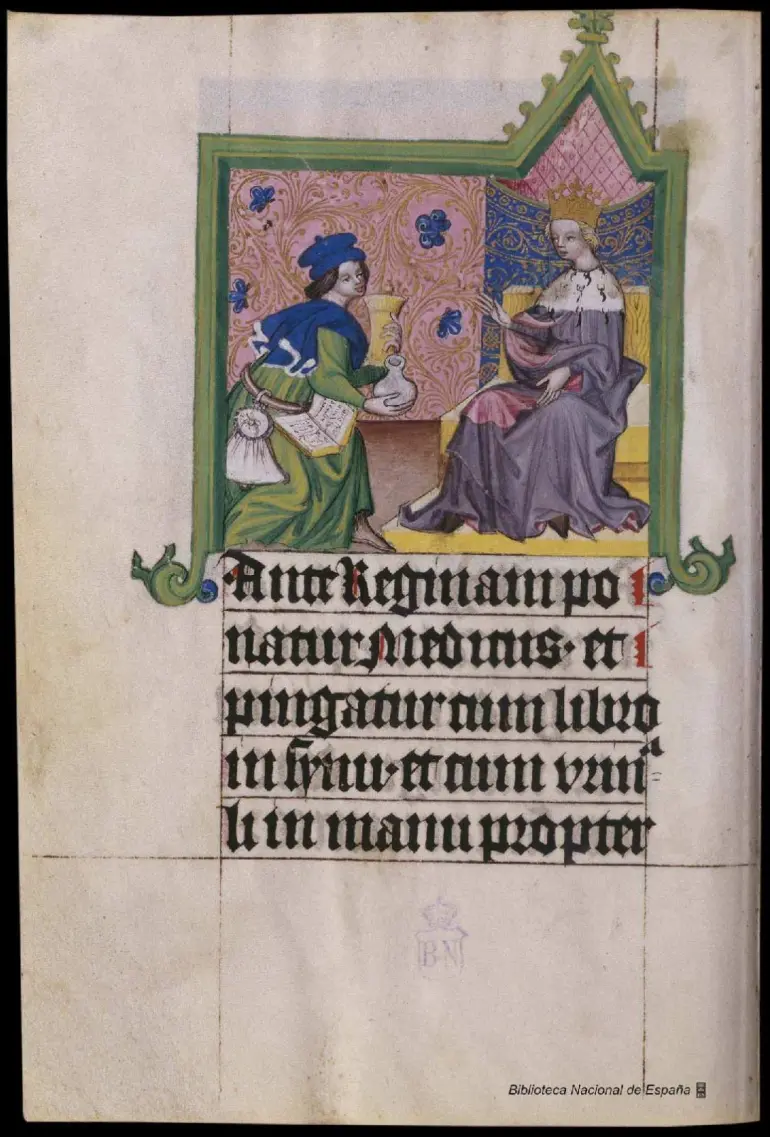 ·Ante Reginam po
natur Medicus· et
pingatur cum libro
in synu· et cum vrina=
li in manu propter
B·N
Biblioteca Nacional de España